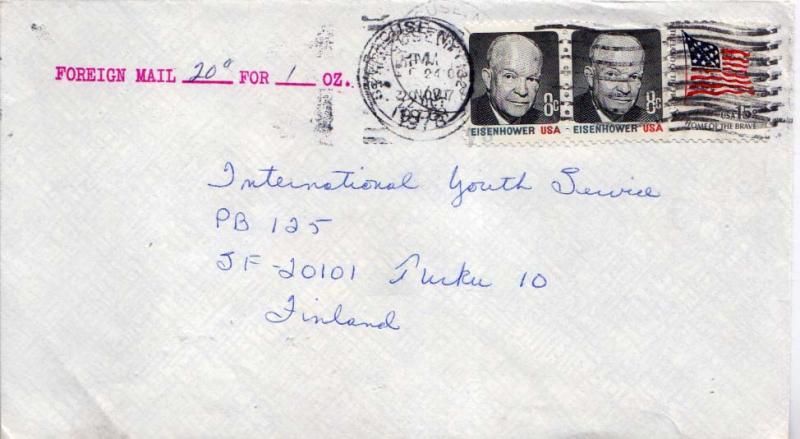 FOREIGN MAIL 20¢ FOR 1 OZ.
8c
EISENHOWER USA
8c
EISENHOWER USA
USA 15c
HOME OF THE BRAVE
International Youth Service
PB 125
SF-20101 Turku 10
Finland